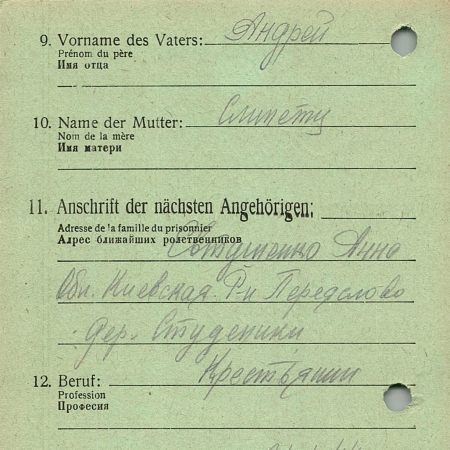 9. Vorname des Vaters: Андрей
Prénom du père
Имя отца
10. Name der Mutter:
Nom de la mère
Имя матери
11. Anschrift der nächsten Angehörigen:
Adresse de la famille du prisonnier
Алрес ближайших ролетвенников
Анна
Обл. Киевская. Р-н Переяслово
дер. Студеники
12. Beruf: Крестьянин
Profession
Професия